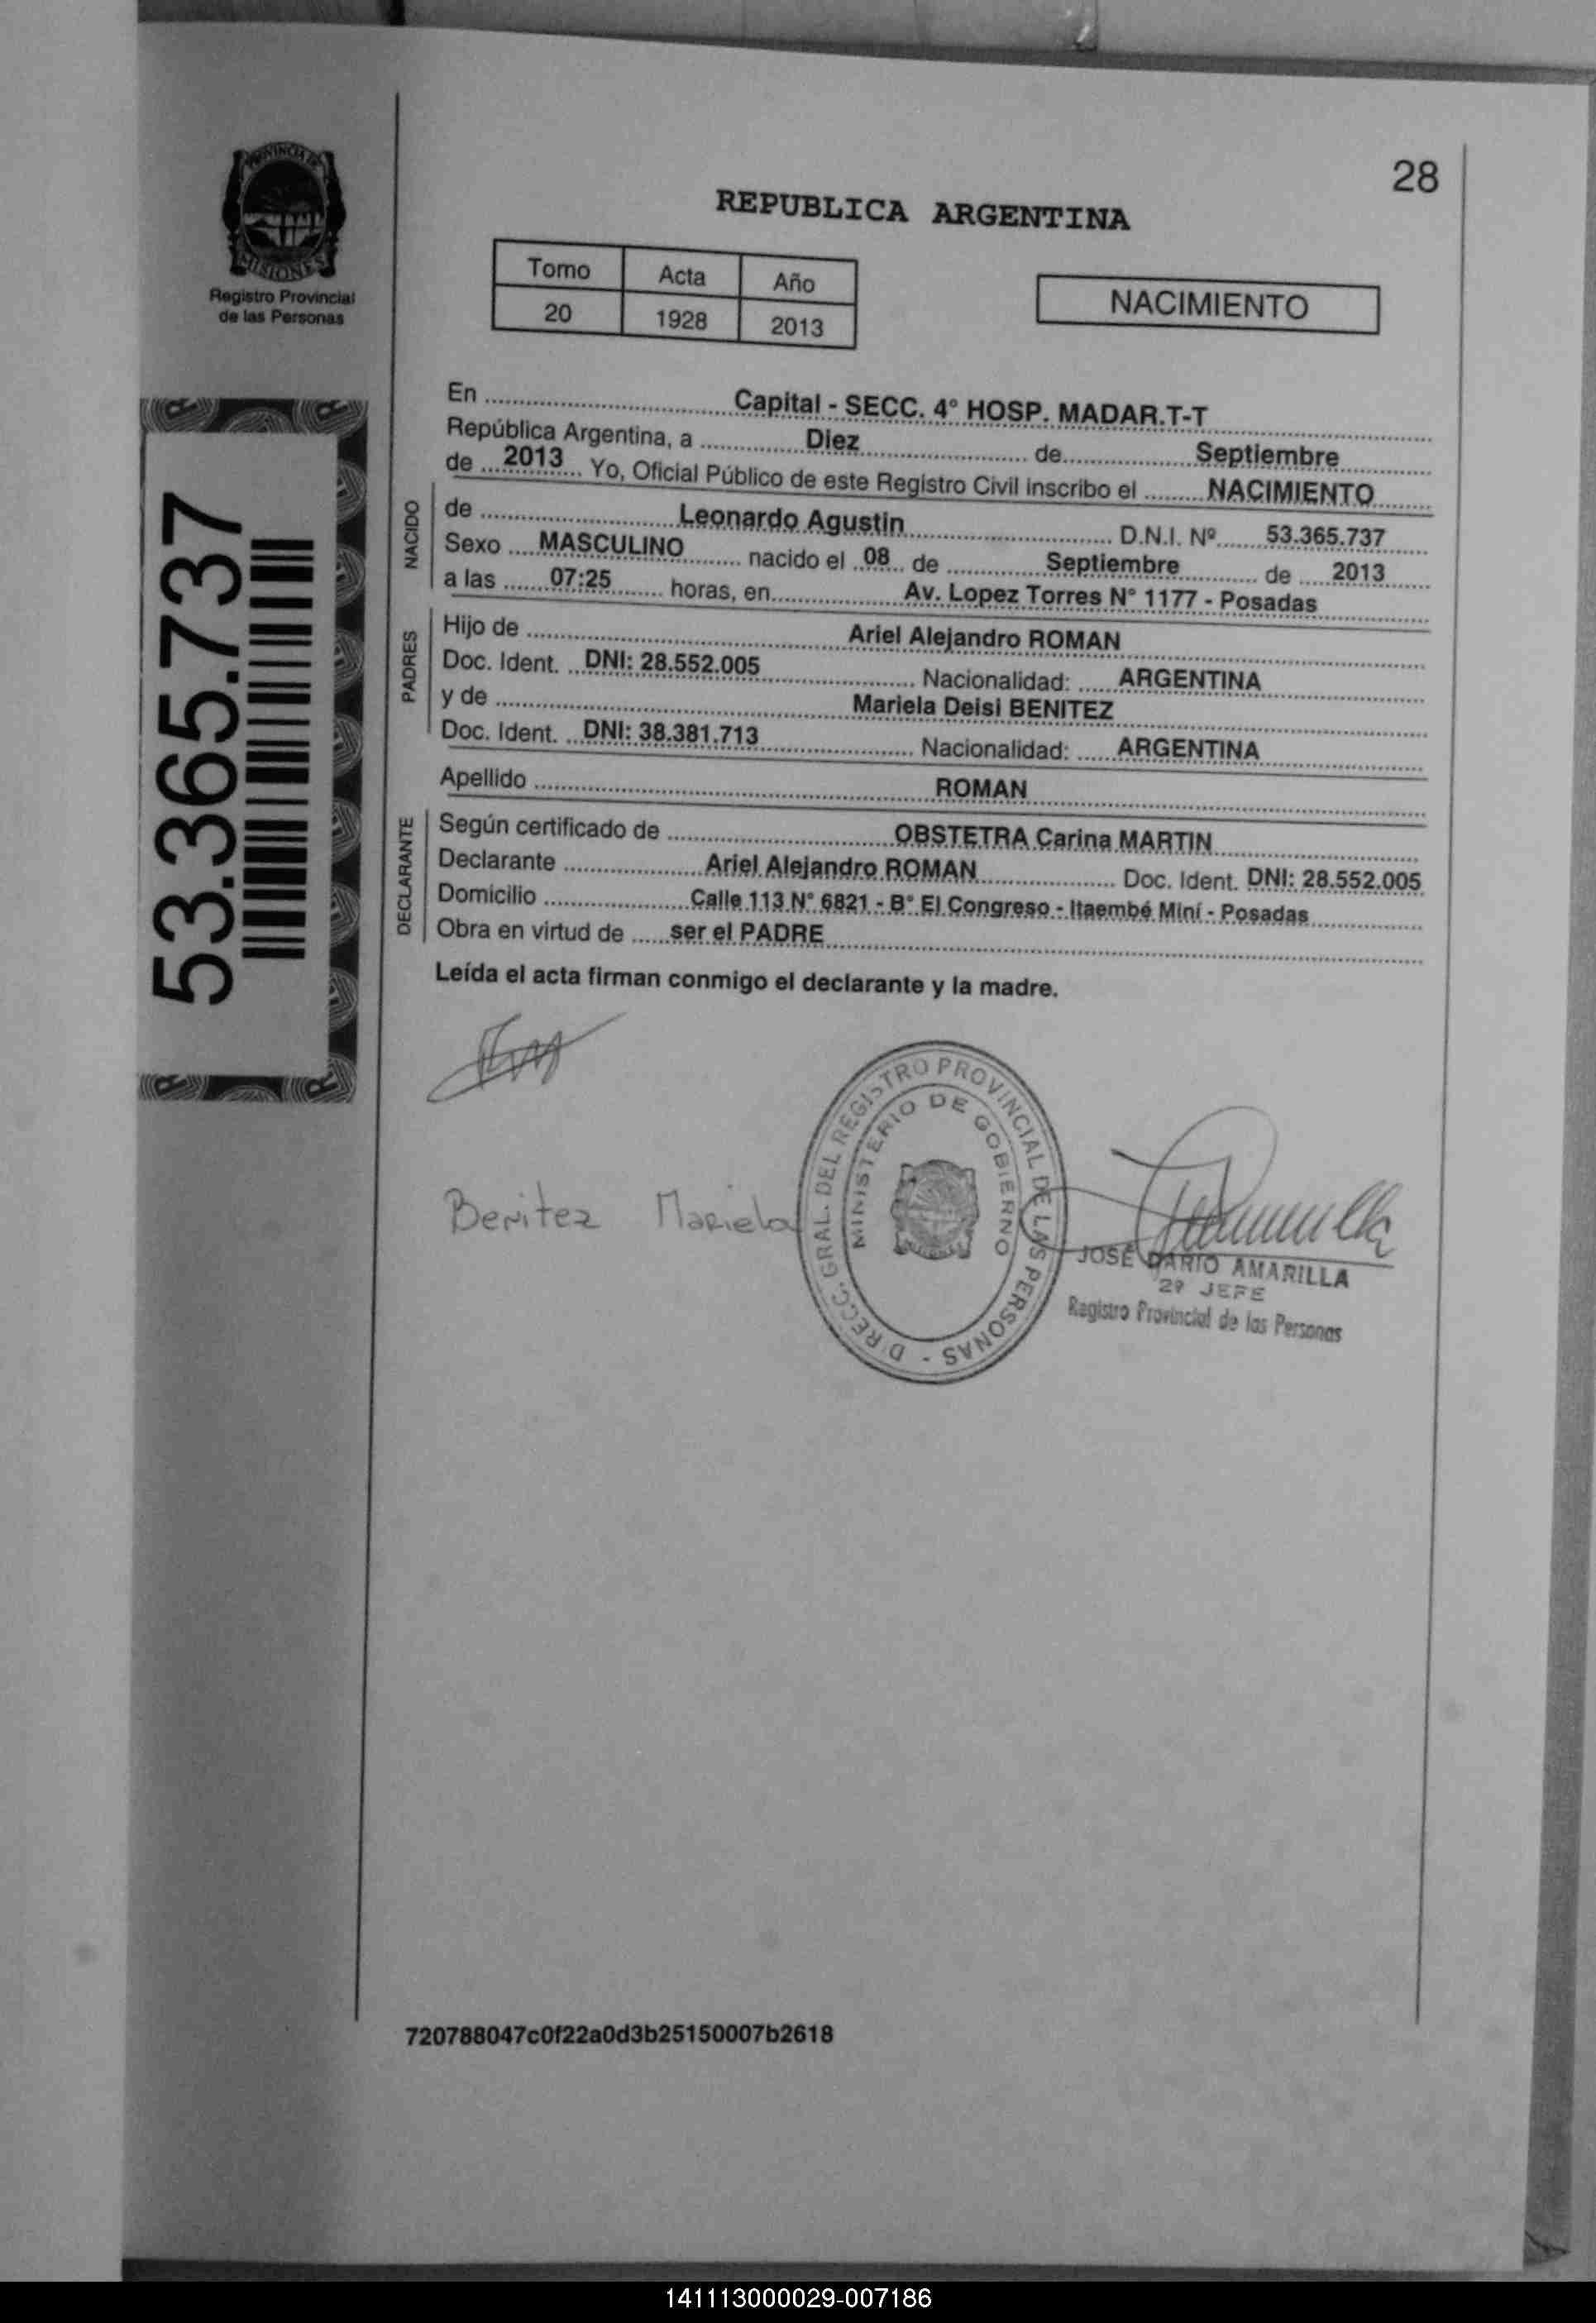 PROVINCIA DE
MISIONES
Registro Provincial
de las Personas
53.365.737
28
REPUBLICA ARGENTINA
Tomo Acta Año
20 1928 2013
NACIMIENTO
En Capital - SECC. 4° HOSP. MADAR.T-T
República Argentina, a Diez de Septiembre
de 2013 Yo, Oficial Público de este Registro Civil inscribo el NACIMIENTO
NACIDO
de Leonardo Agustin D.N.I. Nº 53.365.737
Sexo MASCULINO nacido el 08 de Septiembre de 2013
a las 07:25 horas, en Av. Lopez Torres N° 1177 - Posadas
PADRES
Hijo de Ariel Alejandro ROMAN
Doc. Ident. DNI: 28.552.005 Nacionalidad: ARGENTINA
y de Mariela Deisi BENITEZ
Doc. Ident. DNI: 38.381.713 Nacionalidad: ARGENTINA
Apellido ROMAN
DECLARANTE
Según certificado de OBSTETRA Carina MARTIN
Declarante Ariel Alejandro ROMAN Doc. Ident. DNI: 28.552.005
Domicilio Calle 113 N° 6821 - B° El Congreso - Itaembé Miní - Posadas
Obra en virtud de ser el PADRE
Leída el acta firman conmigo el declarante y la madre.
Benitez Mariela
DIRECC. GRAL. DEL REGISTRO PROVINCIAL DE LAS PERSONAS -
MINISTERIO DE GOBIERNO
JOSÉ DARIO AMARILLA
2º JEFE
Registro Provincial de las Personas
720788047c0f22a0d3b25150007b2618
141113000029-007186